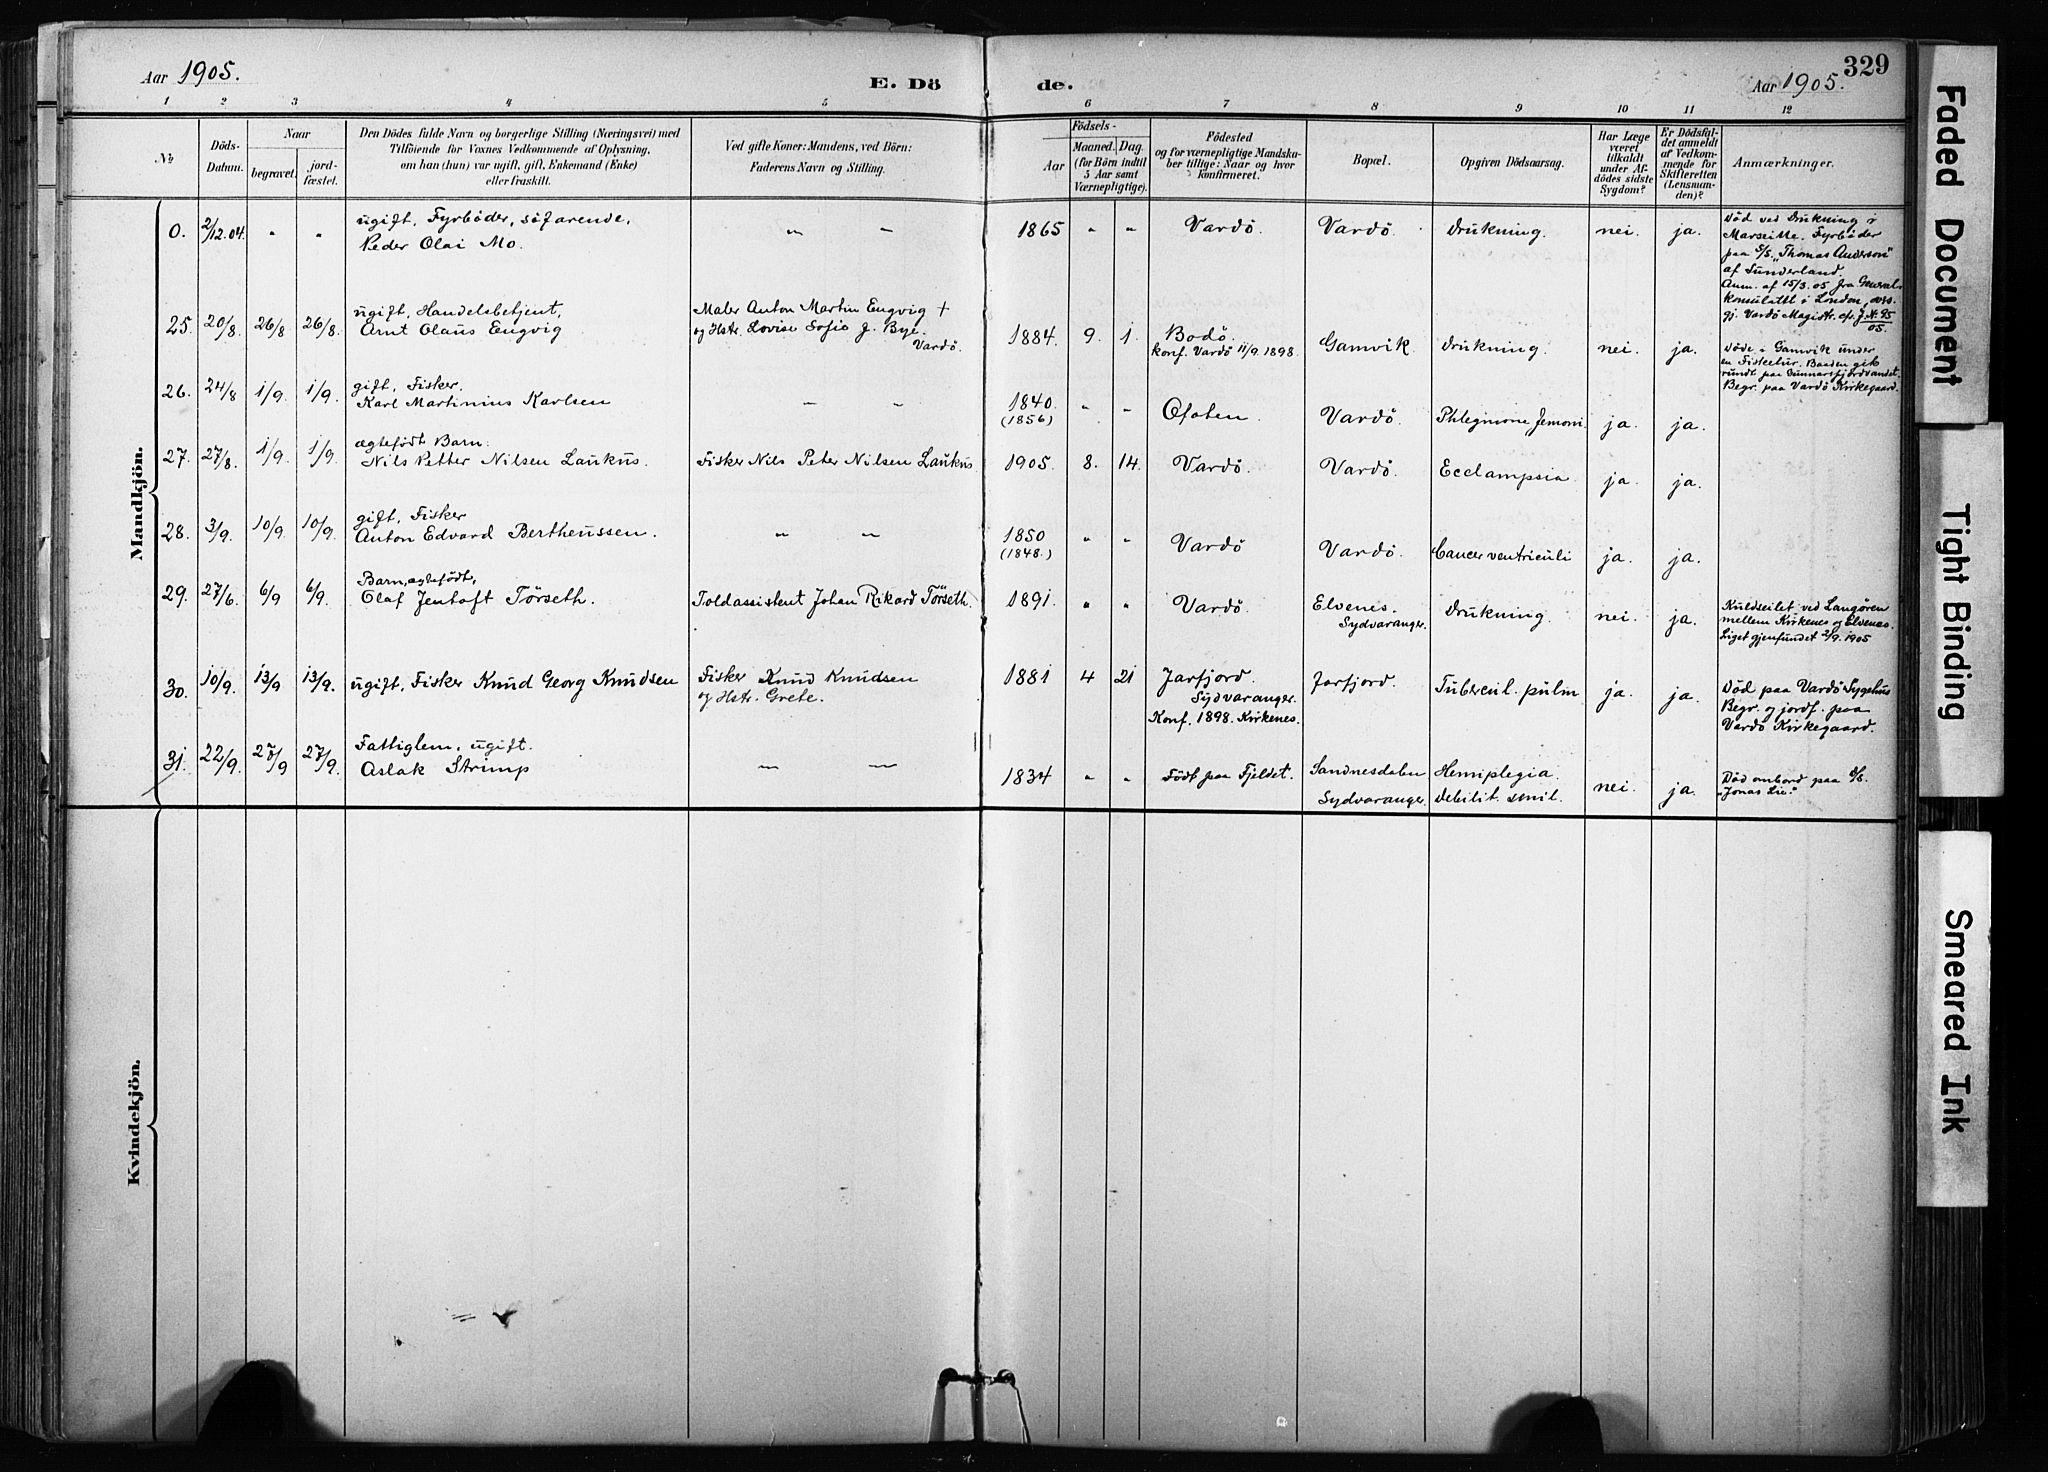 Aar 1905.
E. Dö
de.
Aar 1905.
329
1 2 3 4 5 6 7 8 9 10 11 12
No
Döds-
Datum.
Naar
begravet.
jord-
fæstet.
Den Dödes fulde Navn og borgerlige Stilling (Næringsvei) med
Tilföiende for Voxnes Vedkommende af Oplysning,
om han (hun) var ugift, gift, Enkemand (Enke)
eller fraskilt.
Ved gifte Koner: Mandens, ved Börn:
Faderens Navn og Stilling.
Födsels-
Aar
Maaned.
Dag.
(for Börn indtil
5 Aar samt
Værnepligtige).
Födested
og for værnepligtige Mandska-
ber tillige: Naar og hvor
konfirmeret.
Bopæl.
Opgiven Dödsaarsag.
Har Læge
været
tilkaldt
under Af-
dödes sidste
Sygdom?
Er Dödsfal-
det anmeldt
af Vedkom-
mende for
Skifteretten
(Lensman-
den)?
Anmærkninger.
Mandkjön.
0. 2/12.04. " " ugift, Fyrböder, söfarende,
Peder Olai Mo. " " 1865 " " Vardö. Vardö. Drukning. nei. ja.
Död ved Drukning i
Marseille. Fyrböder
paa S/S. "Thomas Anderson"
af Sunderland.
Anm. af 15/3.05 fra General-
konsulatet i London, overs.
gj. Vardö Magistr. cfr. J. No 95/05.
25. 20/8. 26/8 26/8. ugift, Handelsbetjent,
Arnt Olaus Engvig
Maler Anton Martin Engvig +
og Hstr. Lovise Sofie f. Bye.
Vardö.
1884. 9. 1. Bodö.
konf. Vardö 11/9.1898. Gamvik Drukning. nei. ja.
Döde i Gamvik under
en Fisketur. Baaden gik
rundt paa Gunnarsfjordvandet.
Begr. paa Vardö Kirkegaard.
26. 24/8 1/9. 1/9. gift, Fisker.
Karl Martinius Karlsen " " 1840.
(1856) " " Ofoten. Vardö. Phlegmone, ja. ja.
27. 27/8. 1/9. 1/9. ægtefödt Barn.
Nils Petter Nilsen Laukus. Fisker Nils Peter Nilsen Laukus 1905. 8. 14. Vardö. Vardö. Ecclampsia. ja. ja.
28. 3/9. 10/9. 10/9. gift, Fisker
Anton Edvard Bertheussen. " " 1850
(1848.) " " Vardö Vardö. Cancer ventriculi ja. ja.
29. 27/6. 6/9 6/9. Barn, ægtefödt,
Olaf Jentoft Törseth. Toldassistent Johan Rikard Törseth. 1891. " " Vardö. Elvenes.
Sydvaranger. Drukning. nei. ja.
Kuldseilet ved Langören
mellem Kirkenes og Elvenes.
Liget gjenfundet 2/9. 1905
30. 10/9. 13/9 13/9. ugift, Fisker Knud Georg Knudsen Fisker Knud Knudsen
og Hstr. Grete. 1881 4 21 Jarfjord.
Sydvaranger.
Konf. 1898. Kirkenes. Jarfjord. Tubercul. pulm ja. ja.
Död paa Vardö Sygehus
Begr. og jordf. paa
Vardö Kirkegaard.
31. 22/9. 27/9 27/9. Fattiglem, ugift.
Aslak Strimp " " 1834 " " Födt paa Fjeldet. Sandnesdalen
Sydvaranger. Hemiplegia.
Debilit. senil. nei. ja.
Död ombord paa S/S.
"Jonas Lie."
Kvindekjön.
Faded Document
Tight Binding
Smeared Ink